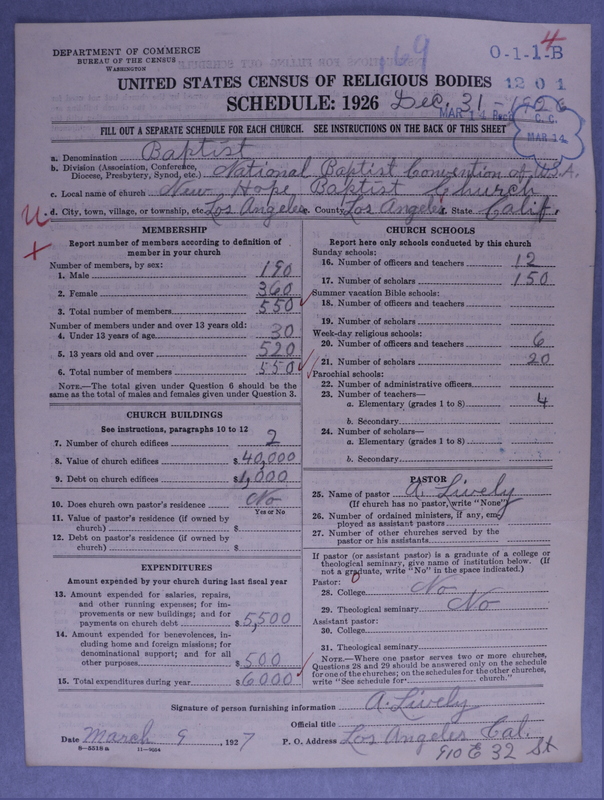 DEPARTMENT OF COMMERCE
BUREAU OF THE CENSUS
WASHINGTON
169
4
O-1-1-B
UNITED STATES CENSUS OF RELIGIOUS BODIES
1201
SCHEDULE: 1926 Dec, 31-1926
MAR 14 Recd
C. C.
MAR 14
FILL OUT A SEPARATE SCHEDULE FOR EACH CHURCH. SEE INSTRUCTIONS ON THE BACK OF THIS SHEET
a. Denomination Baptist
b. Division (Association, Conference, Diocese, Presbytery, Synod, etc.) National Baptist Convention of U.S.A.
c. Local name of church New Hope Baptist Church
d. City, town, village, or township, etc. Los Angeles County Los Angeles State Calif.
MEMBERSHIP
Report number of members according to definition of
member in your church
Number of members, by sex:
1. Male 190
2. Female 360
3. Total number of members 550
Number of members under and over 13 years old:
4. Under 13 years of age 30
5. 13 years old and over 520
6. Total number of members 550
NOTE.—The total given under Question 6 should be the
same as the total of males and females given under Question 3.
CHURCH BUILDINGS
See instructions, paragraphs 10 to 12
7. Number of church edifices 2
8. Value of church edifices $40,000
9. Debt on church edifices $1,000
10. Does church own pastor's residence No
Yes or No
11. Value of pastor's residence (if owned by
church) $
12. Debt on pastor's residence (if owned by
church) $
EXPENDITURES
Amount expended by your church during last fiscal year
13. Amount expended for salaries, repairs,
and other running expenses; for im-
provements or new buildings; and for
payments on church debt $5,500
14. Amount expended for benevolences, in-
cluding home and foreign missions; for
denominational support; and for all
other purposes $500
15. Total expenditures during year $6000
CHURCH SCHOOLS
Report here only schools conducted by this church
Sunday schools:
16. Number of officers and teachers 12
17. Number of scholars 150
Summer vacation Bible schools:
18. Number of officers and teachers
19. Number of scholars
Week-day religious schools:
20. Number of officers and teachers 6
21. Number of scholars 20
Parochial schools:
22. Number of administrative officers
23. Number of teachers—
a. Elementary (grades 1 to 8) 4
b. Secondary
24. Number of scholars—
a. Elementary (grades 1 to 8)
b. Secondary
PASTOR
25. Name of pastor A. Lively
(If church has no pastor, write "None")
26. Number of ordained ministers, if any, em-
ployed as assistant pastors
27. Number of other churches served by the
pastor or his assistants
If pastor (or assistant pastor) is a graduate of a college or
theological seminary, give name of institution below. (If
not a graduate, write "No" in the space indicated.)
Pastor:
28. College No
29. Theological seminary No
Assistant pastor:
30. College
31. Theological seminary
NOTE.—Where one pastor serves two or more churches,
Questions 28 and 29 should be answered only on the schedule
for one of the churches; on the schedules for the other churches,
write "See schedule for church."
Signature of person furnishing information A. Lively
Official title
Date March 9, 1927 P. O. Address Los Angeles Cal.
8-5518a 11-9034
910 E 32 St